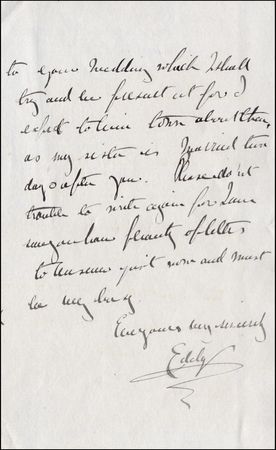 to your wedding which I shall
try and be present at for I
expect to be in town about then,
as my sister is married two
days after you. Please don't
trouble to write again for I am
sure you have plenty of letters
to answer just now and must
be very busy
Ever yours very sincerely
Eddy